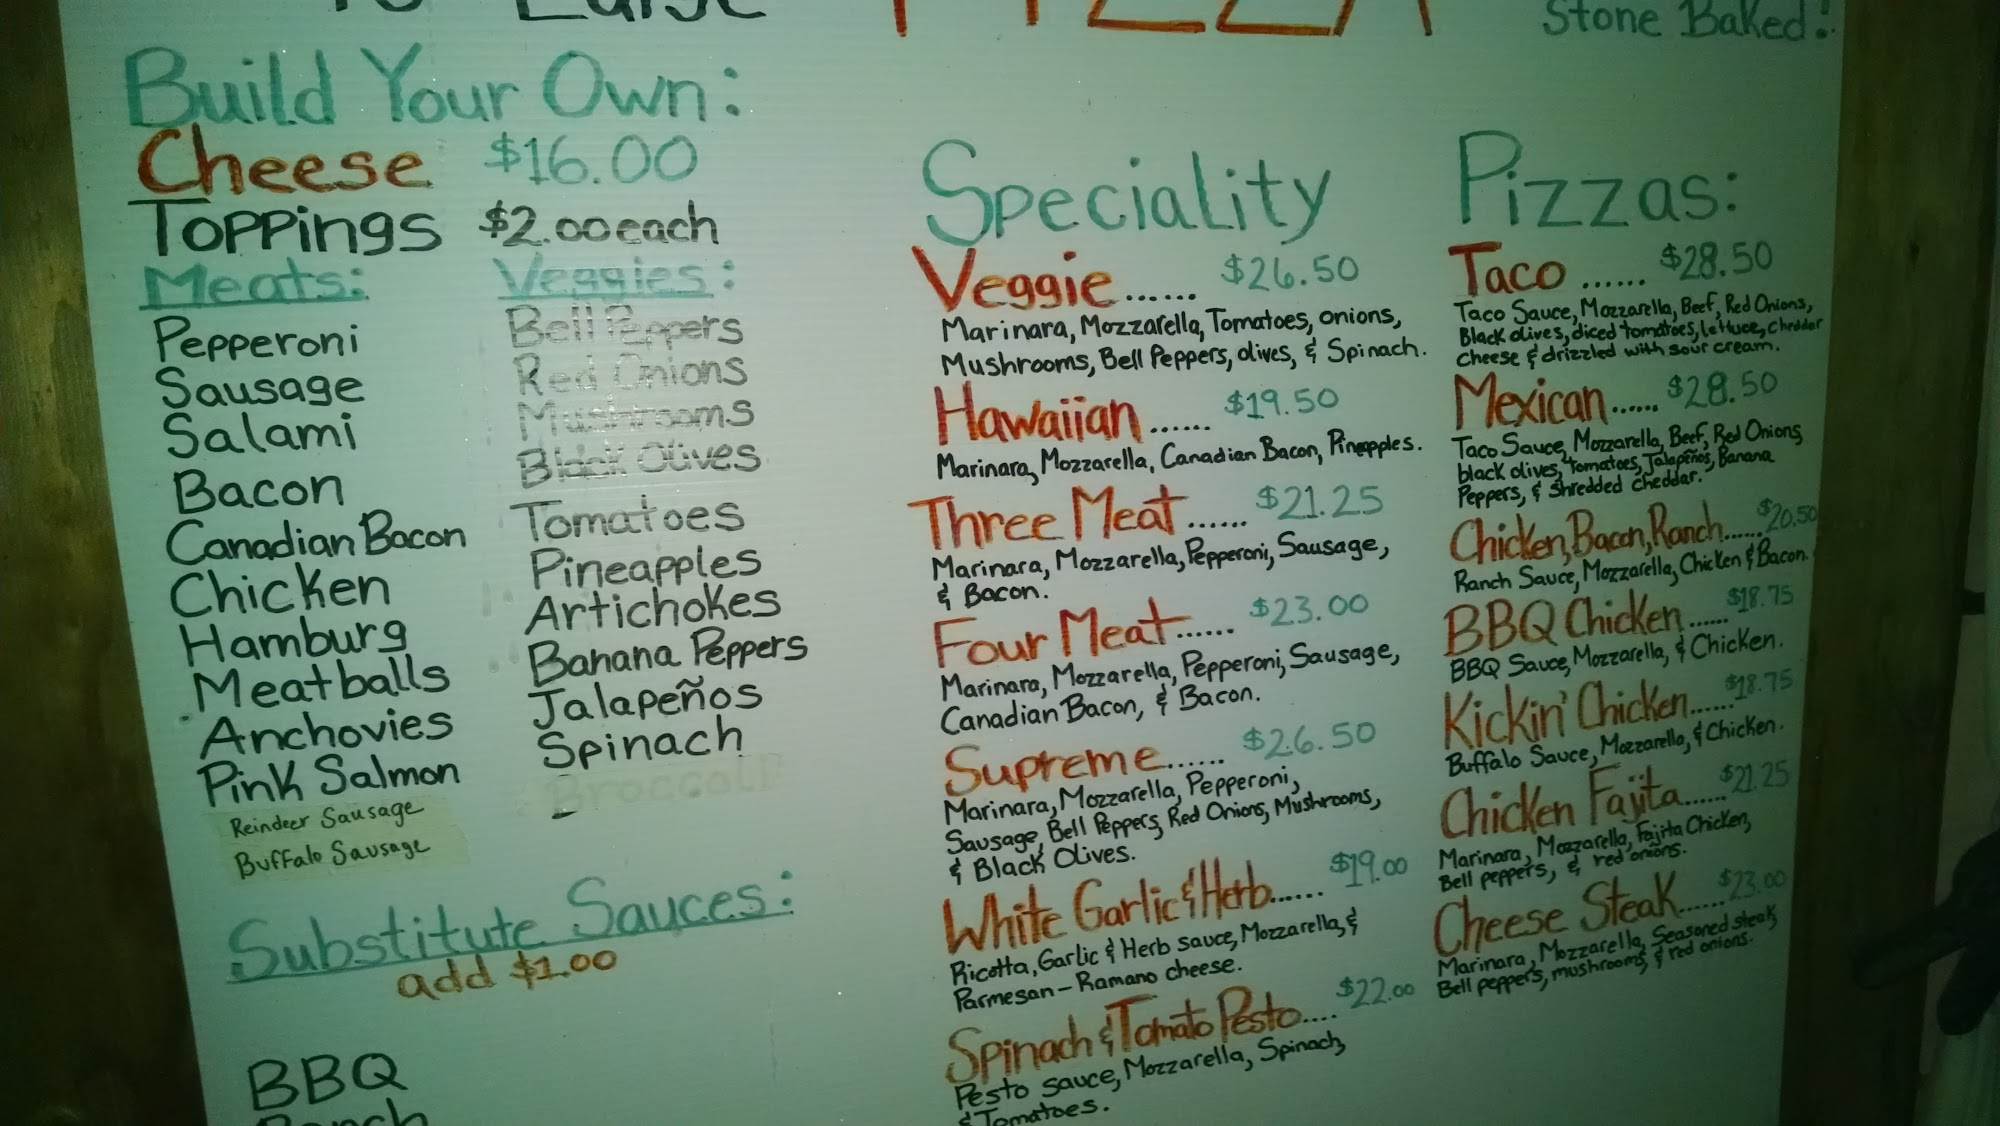 Stone Baked!
Build Your Own:
Cheese $16.00
Toppings $2.00 each
Meats:
Pepperoni
Sausage
Salami
Bacon
Canadian Bacon
Chicken
Hamburg
Meatballs
Anchovies
Pink Salmon
Reindeer Sausage
Buffalo Sausage
Veggies:
Bell Peppers
Red Onions
Mushrooms
Black Olives
Tomatoes
Pineapples
Artichokes
Banana Peppers
Jalapeños
Spinach
Broccoli
Substitute Sauces:
add $1.00
BBQ
Ranch
Speciality Pizzas:
Veggie...... $26.50
Marinara, Mozzarella, Tomatoes, onions,
Mushrooms, Bell Peppers, olives, & Spinach.
Hawaiian...... $19.50
Marinara, Mozzarella, Canadian Bacon, Pineapples.
Three Meat...... $21.25
Marinara, Mozzarella, Pepperoni, Sausage,
& Bacon.
Four Meat...... $23.00
Marinara, Mozzarella, Pepperoni, Sausage,
Canadian Bacon, & Bacon.
Supreme...... $26.50
Marinara, Mozzarella, Pepperoni,
Sausage, Bell Peppers, Red Onions, Mushrooms,
& Black Olives.
White Garlic & Herb...... $19.00
Ricotta, Garlic & Herb sauce, Mozzarella, &
Parmesan-Ramano cheese.
Spinach & Tomato Pesto.... $22.00
Pesto sauce, Mozzarella, Spinach,
& Tomatoes.
Taco...... $28.50
Taco Sauce, Mozzarella, Beef, Red Onions,
Black olives, diced tomatoes, lettuce, cheddar
cheese & drizzled with sour cream.
Mexican...... $28.50
Taco Sauce, Mozzarella, Beef, Red Onions,
black olives, tomatoes, Jalapeños, Banana
Peppers, & shredded cheddar.
Chicken, Bacon, Ranch...... $20.50
Ranch Sauce, Mozzarella, Chicken & Bacon.
BBQ Chicken...... $18.75
BBQ Sauce, Mozzarella, & Chicken.
Kickin' Chicken...... $18.75
Buffalo Sauce, Mozzarella, & Chicken.
Chicken Fajita...... $21.25
Marinara, Mozzarella, Fajita Chicken,
Bell peppers, & red onions.
Cheese Steak...... $23.00
Marinara, Mozzarella, Seasoned steak,
Bell peppers, mushrooms, & red onions.